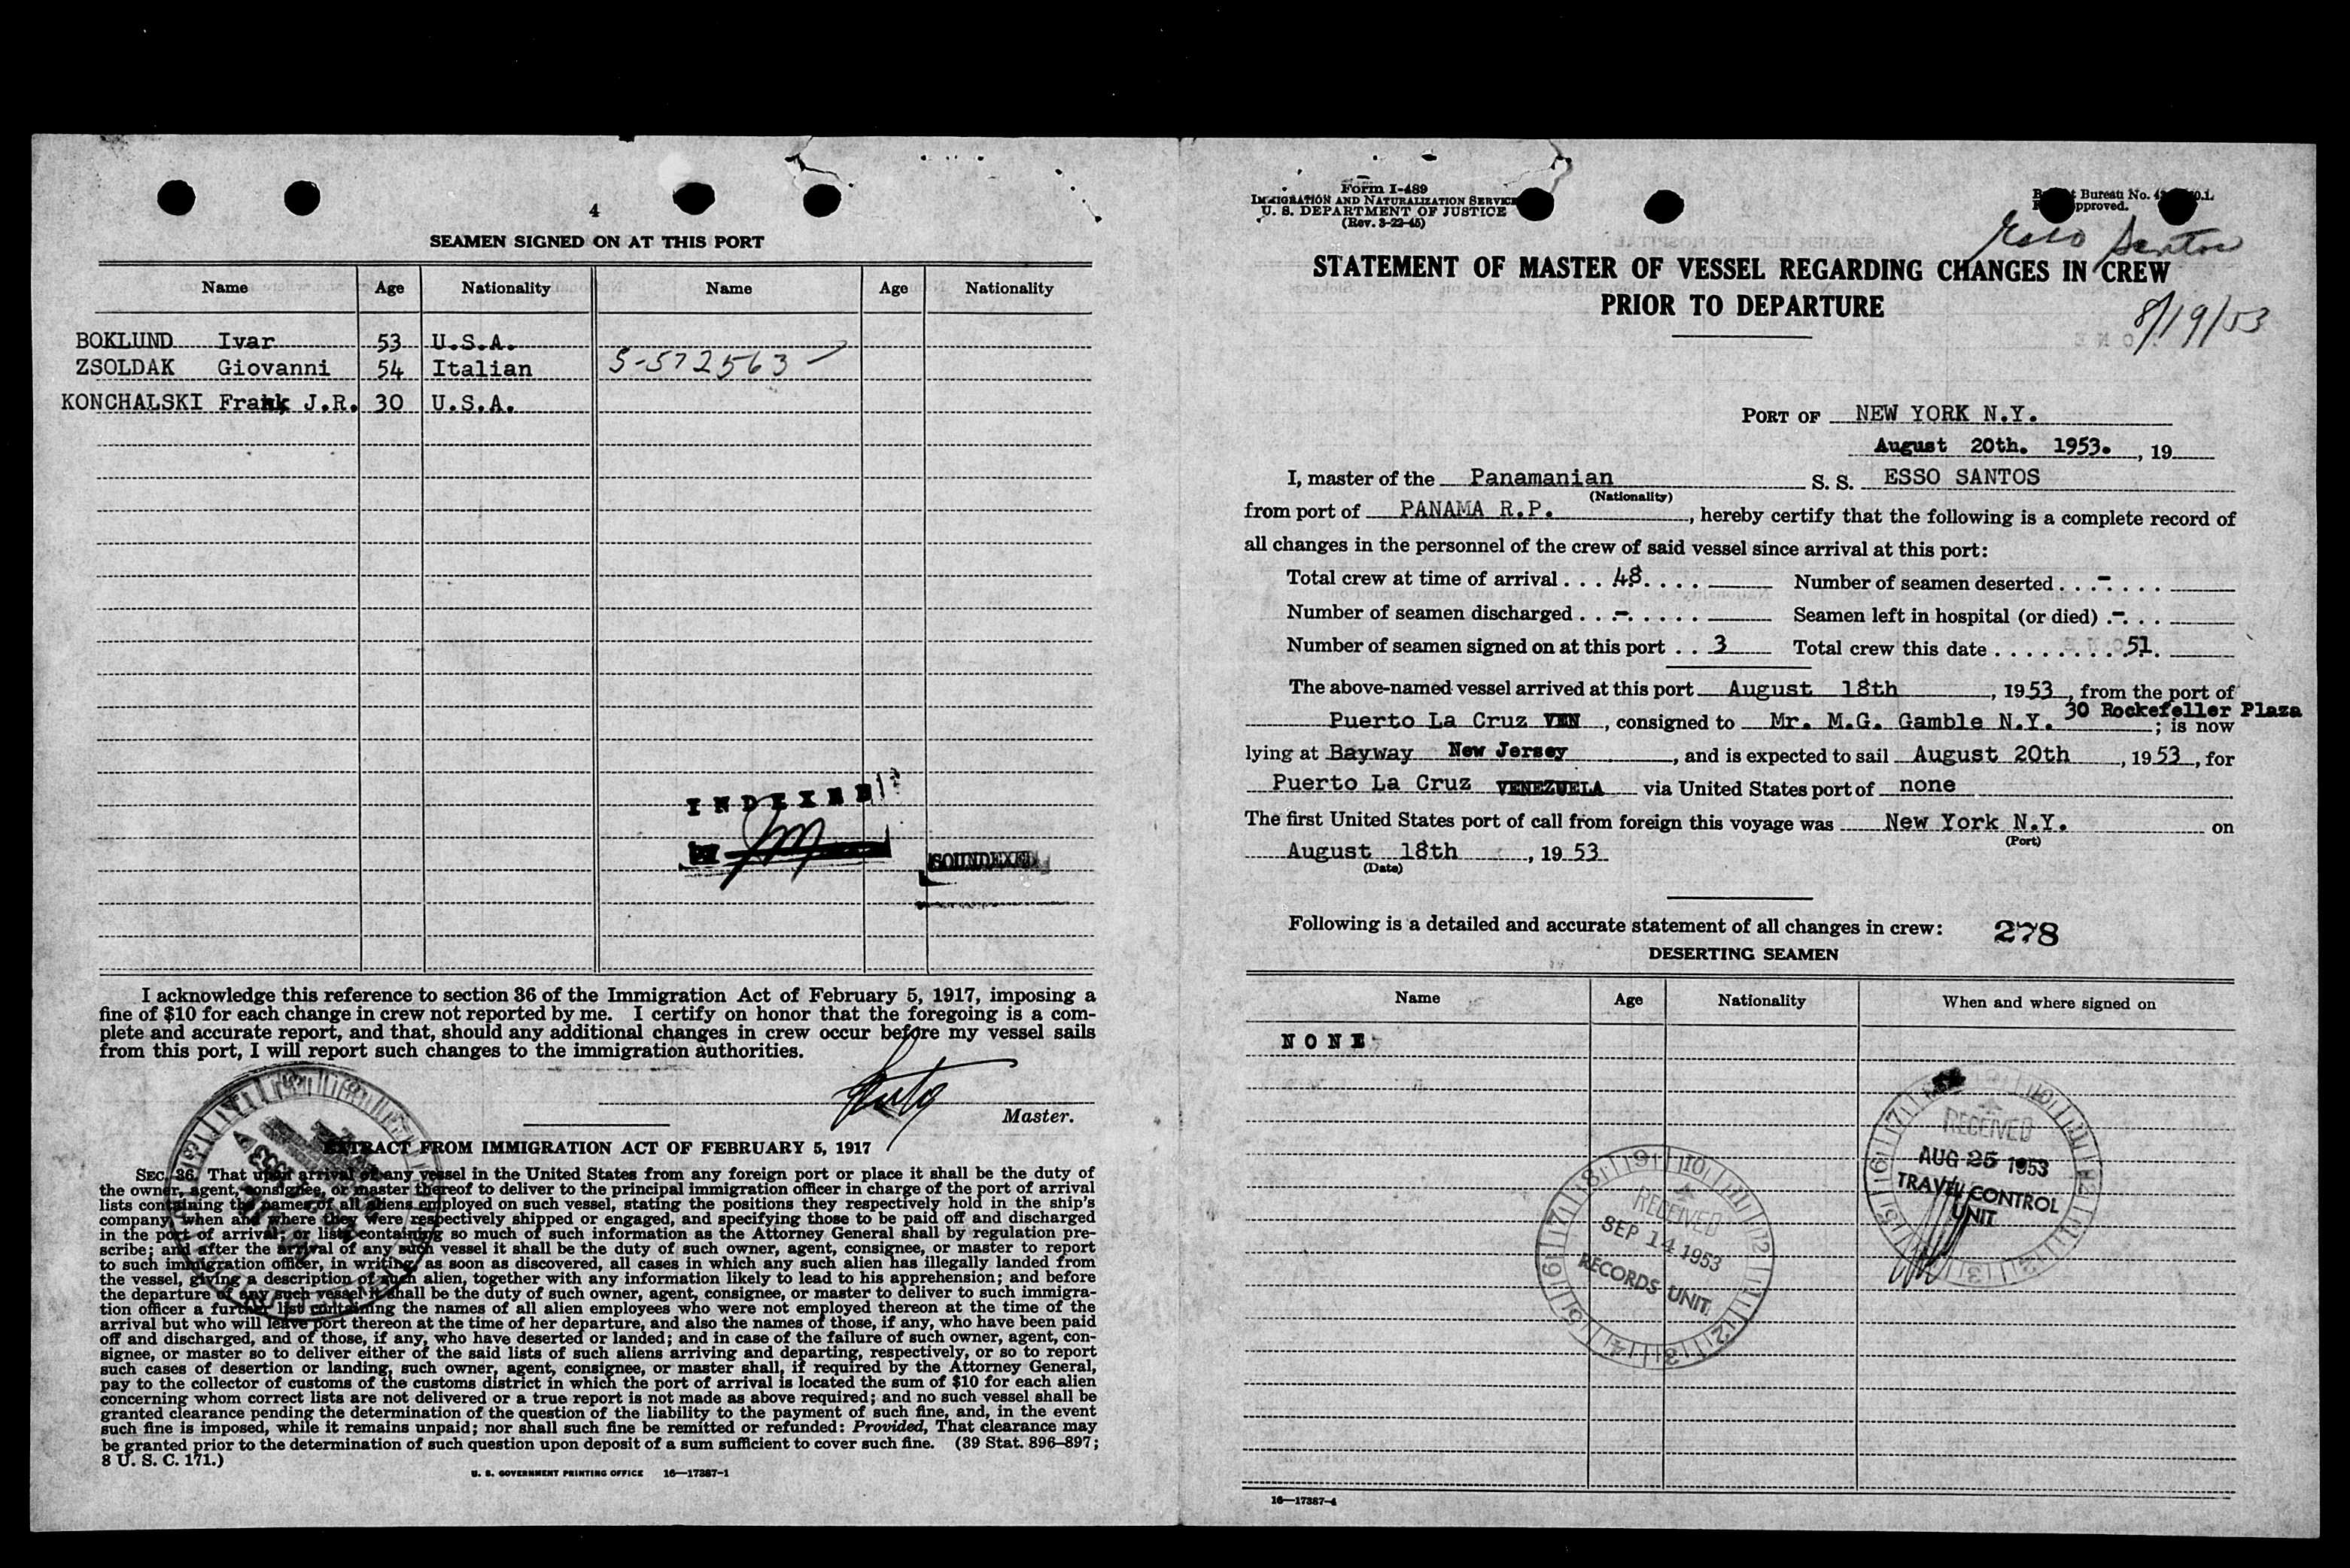 4
SEAMEN SIGNED ON AT THIS PORT
Name Age Nationality Name Age Nationality
BOKLUND Ivar 53 U.S.A.
ZSOLDAK Giovanni 54 Italian 5-572563
KONCHALSKI Frank J.R. 30 U.S.A.
INDEXED
SOUNDEXED
I acknowledge this reference to section 36 of the Immigration Act of February 5, 1917, imposing a
fine of $10 for each change in crew not reported by me. I certify on honor that the foregoing is a com-
plete and accurate report, and that, should any additional changes in crew occur before my vessel sails
from this port, I will report such changes to the immigration authorities.
Master.
EXTRACT FROM IMMIGRATION ACT OF FEBRUARY 5, 1917
SEC. 36. That upon arrival of any vessel in the United States from any foreign port or place it shall be the duty of
the owner, agent, consignee, or master thereof to deliver to the principal immigration officer in charge of the port of arrival
lists containing the names of all aliens employed on such vessel, stating the positions they respectively hold in the ship's
company, when and where they were respectively shipped or engaged, and specifying those to be paid off and discharged
in the port of arrival; or lists containing so much of such information as the Attorney General shall by regulation pre-
scribe; and after the arrival of any such vessel it shall be the duty of such owner, agent, consignee, or master to report
to such immigration officer, in writing, as soon as discovered, all cases in which any such alien has illegally landed from
the vessel, giving a description of such alien, together with any information likely to lead to his apprehension; and before
the departure of any such vessel it shall be the duty of such owner, agent, consignee, or master to deliver to such immigra-
tion officer a further list containing the names of all alien employees who were not employed thereon at the time of the
arrival but who will leave port thereon at the time of her departure, and also the names of those, if any, who have been paid
off and discharged, and of those, if any, who have deserted or landed; and in case of the failure of such owner, agent, con-
signee, or master so to deliver either of the said lists of such aliens arriving and departing, respectively, or so to report
such cases of desertion or landing, such owner, agent, consignee, or master shall, if required by the Attorney General,
pay to the collector of customs of the customs district in which the port of arrival is located the sum of $10 for each alien
concerning whom correct lists are not delivered or a true report is not made as above required; and no such vessel shall be
granted clearance pending the determination of the question of the liability to the payment of such fine, and, in the event
such fine is imposed, while it remains unpaid; nor shall such fine be remitted or refunded: Provided, That clearance may
be granted prior to the determination of such question upon deposit of a sum sufficient to cover such fine. (39 Stat. 896–897;
8 U. S. C. 171.)
U. S. GOVERNMENT PRINTING OFFICE 16—17387-1
Form I-489
IMMIGRATION AND NATURALIZATION SERVICE
U. S. DEPARTMENT OF JUSTICE
(Rev. 3-22-45)
Bureau No.
approved.
Esso Santos
STATEMENT OF MASTER OF VESSEL REGARDING CHANGES IN CREW
PRIOR TO DEPARTURE
8/19/53
PORT OF NEW YORK N.Y.
August 20th. 1953. , 19
I, master of the Panamanian S. S. ESSO SANTOS
(Nationality)
from port of PANAMA R.P. , hereby certify that the following is a complete record of
all changes in the personnel of the crew of said vessel since arrival at this port:
Total crew at time of arrival . . . 48 . . . . Number of seamen deserted . . . - . . . .
Number of seamen discharged . . . - . . . . . Seamen left in hospital (or died) . - . . .
Number of seamen signed on at this port . . 3 Total crew this date . . . . . . . . 51.
The above-named vessel arrived at this port August 18th , 1953 , from the port of
Puerto La Cruz VEN , consigned to Mr. M.G. Gamble N.Y. 30 Rockefeller Plaza ; is now
lying at Bayway New Jersey , and is expected to sail August 20th , 1953 , for
Puerto La Cruz VENEZUELA via United States port of none
The first United States port of call from foreign this voyage was New York N.Y. on
(Port)
August 18th , 1953
(Date)
Following is a detailed and accurate statement of all changes in crew: 278
DESERTING SEAMEN
Name Age Nationality When and where signed on
NONE
RECEIVED
AUG 25 1953
TRAVEL CONTROL
UNIT
RECEIVED
SEP 14 1953
RECORDS UNIT
16—17387-4